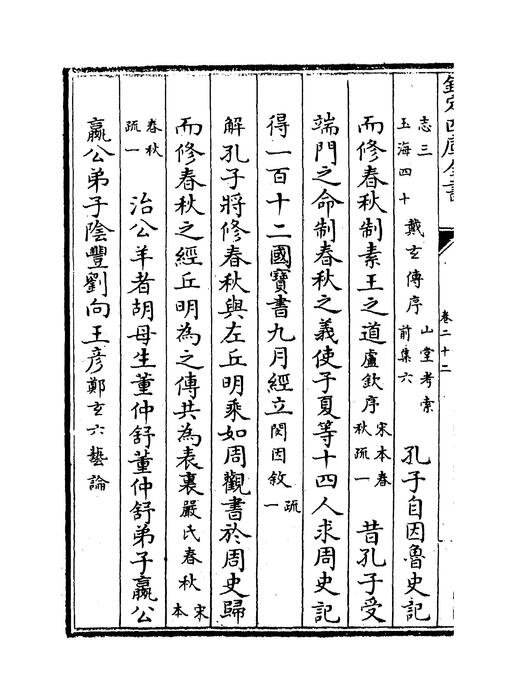 欽定四庫全書
卷二十二
志三玉海四十戴玄傳序山堂考索前集六 孔子自因魯史記
而修春秋制素王之道盧欽序宋本春秋疏一 昔孔子受
端門之命制春秋之義使子夏等十四人求周史記
得一百十二國寶書九月經立閔因敘疏一
解孔子將修春秋與左丘明乘如周觀書於周史歸
而修春秋之經丘明為之傳共為表裏嚴氏春秋宋本
春秋疏一 治公羊者胡母生董仲舒董仲舒弟子嬴公
嬴公弟子陰豐劉向王彦鄭玄六藝論